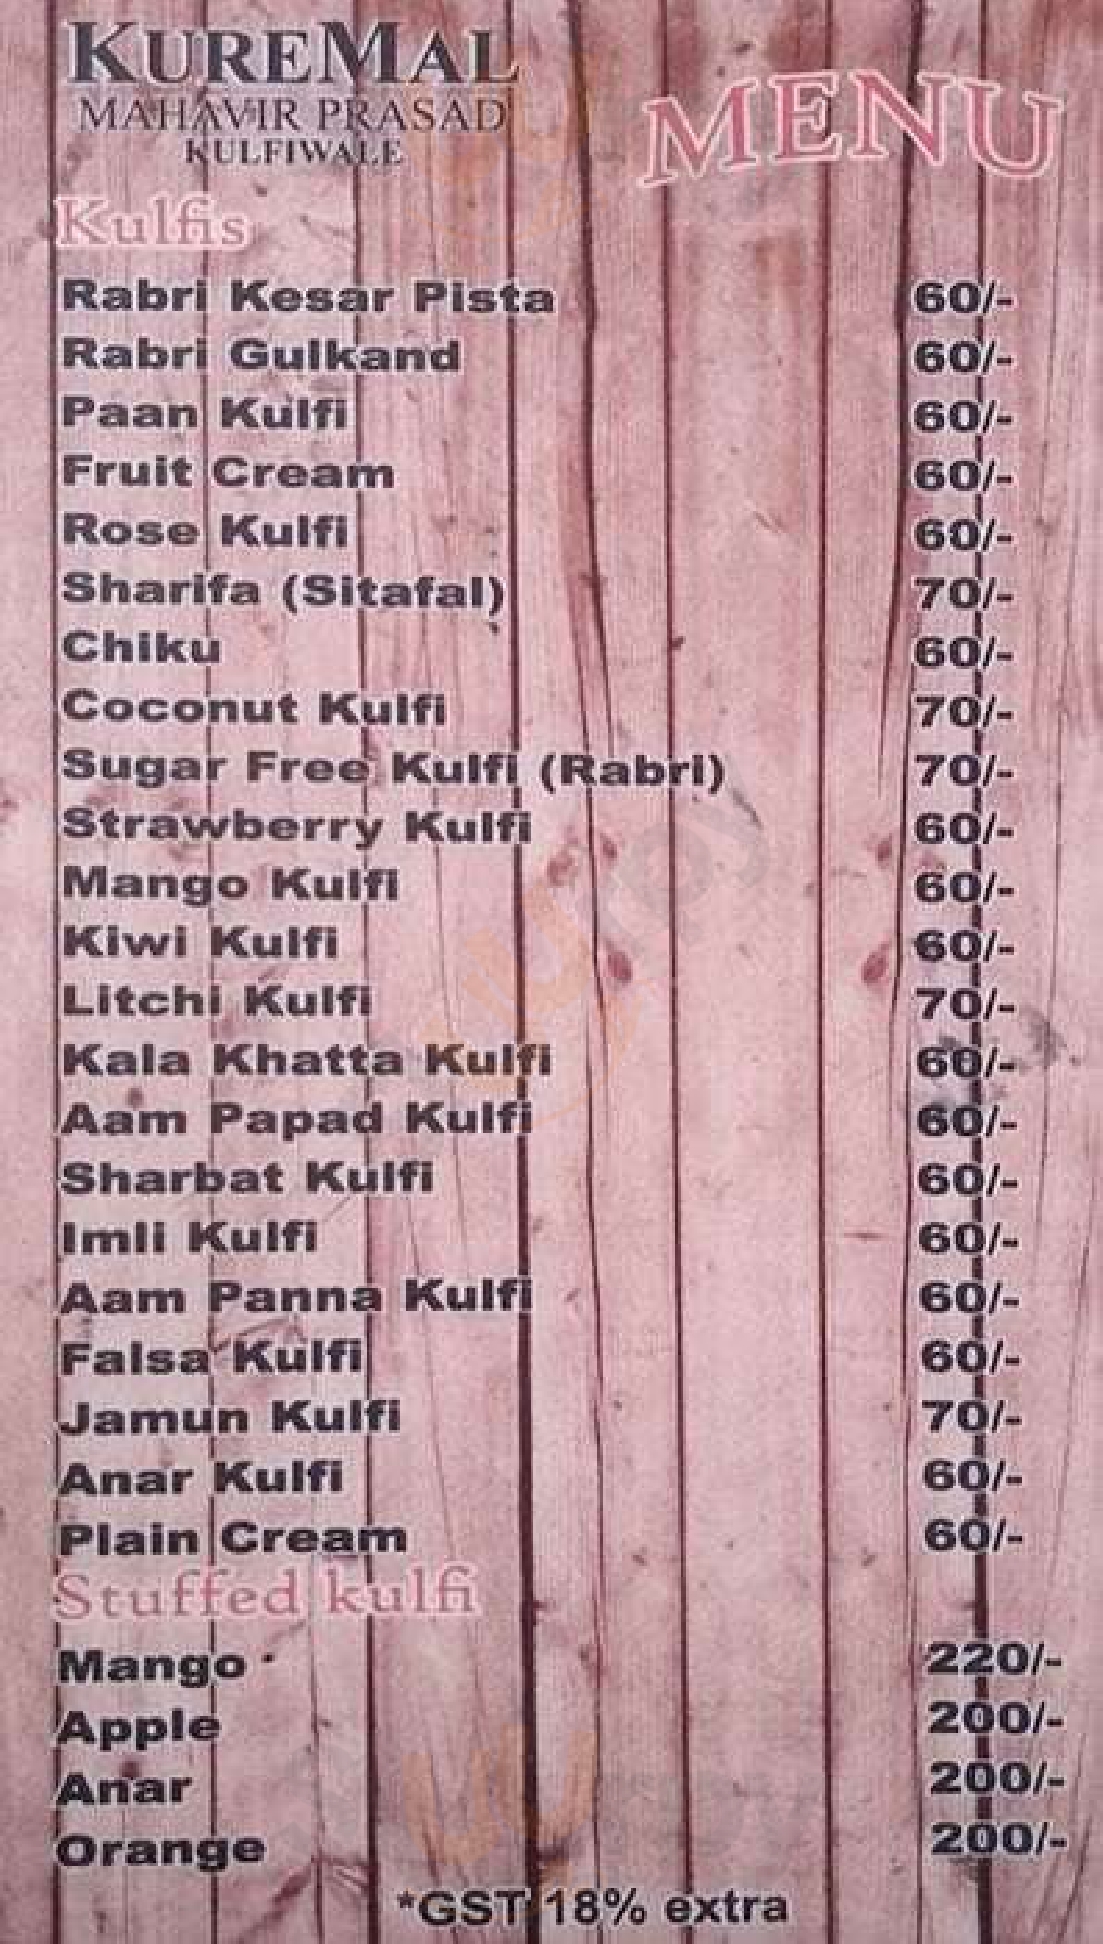 KUREMAL
MAHAVIR PRASAD
KULFIWALE
MENU
Kulfis
Rabri Kesar Pista 60/-
Rabri Gulkand 60/-
Paan Kulfi 60/-
Fruit Cream 60/-
Rose Kulfi 60/-
Sharifa (Sitafal) 70/-
Chiku 60/-
Coconut Kulfi 70/-
Sugar Free Kulfi (Rabri) 70/-
Strawberry Kulfi 60/-
Mango Kulfi 60/-
Kiwi Kulfi 60/-
Litchi Kulfi 70/-
Kala Khatta Kulfi 60/-
Aam Papad Kulfi 60/-
Sharbat Kulfi 60/-
Imli Kulfi 60/-
Aam Panna Kulfi 60/-
Falsa Kulfi 60/-
Jamun Kulfi 70/-
Anar Kulfi 60/-
Plain Cream 60/-
Stuffed kulfi
Mango 220/-
Apple 200/-
Anar 200/-
Orange 200/-
*GST 18% extra